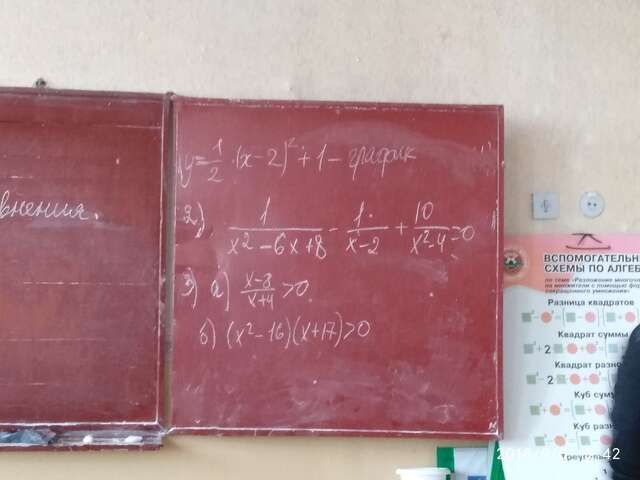 внения.
y = 1/2 · (x - 2)² + 1 - график
2) 1/(x² - 6x + 8) - 1/(x - 2) + 10/(x² - 4) = 0
3) а) (x - 3)/(x + 4) > 0
б) (x² - 16)(x + 17) > 0
ВСПОМОГАТЕЛЬН
СХЕМЫ ПО АЛГЕБ
по теме «Разложение многочле
на множители с помощью фор
сокращенного умножения»
Разница квадратов
Квадрат суммы
Квадрат разно
Куб сумм
Куб разн
Треуголь